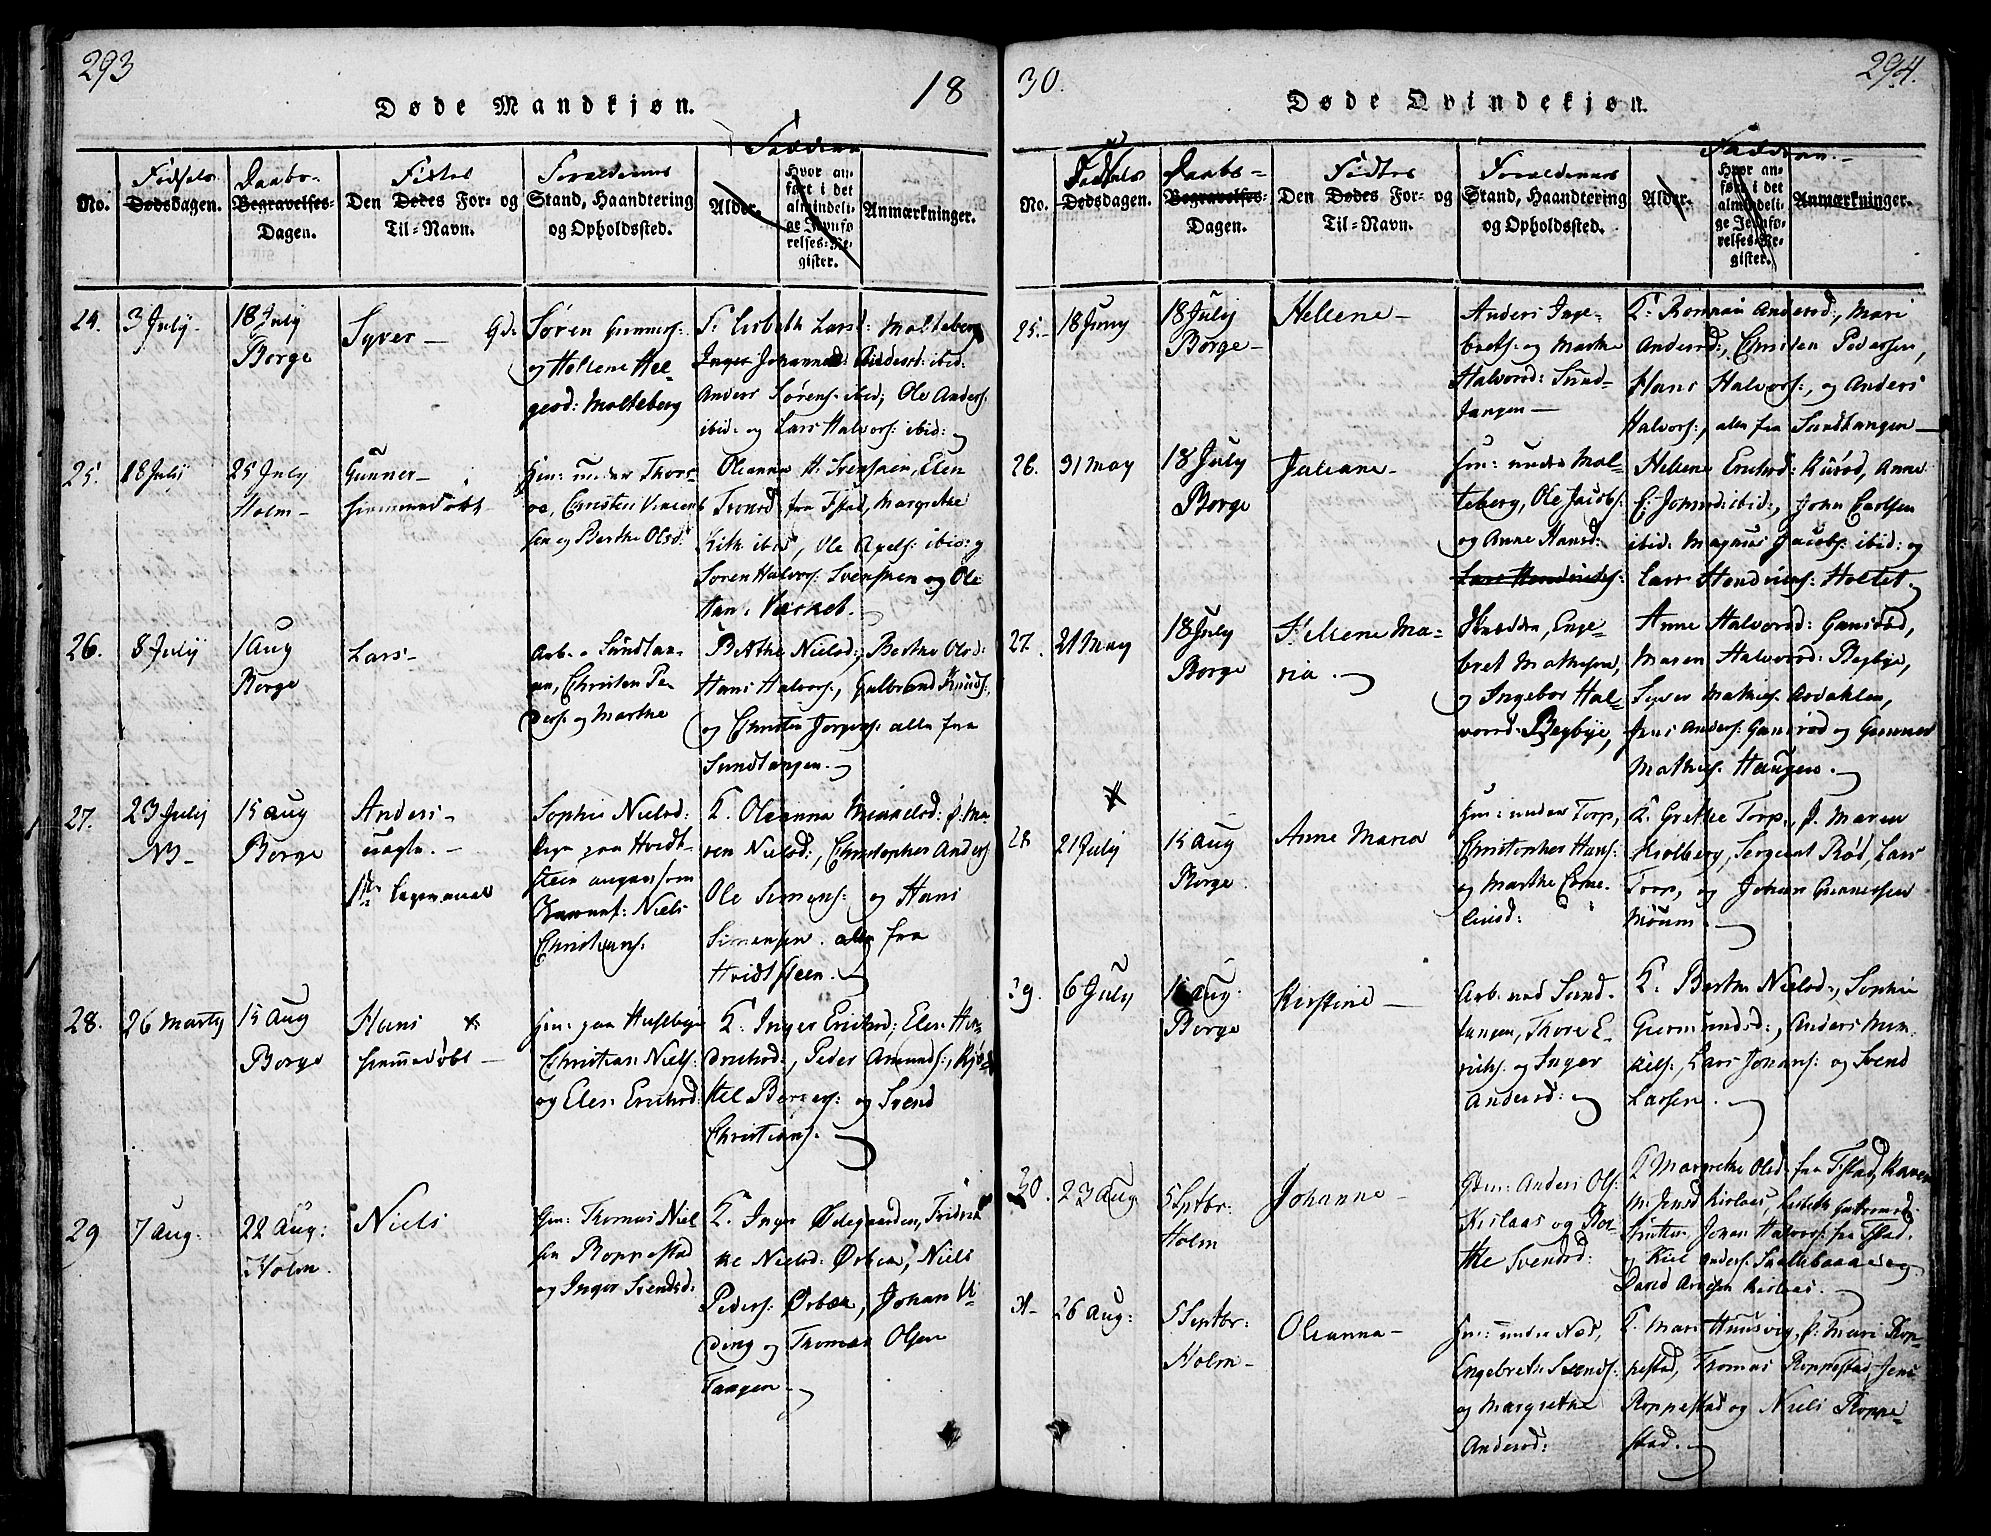 293
18
Døde Mandkjøn.
Faddere
No.
Fødsels-
Dødsdagen.
Daabs-
Begravelses-
Dagen.
Fødtes
Den Dødes For- og
Til-Navn.
Forældrenes
Stand, Haandtering
og Opholdssted.
Alder.
Hvor an-
ført i det
almindeli-
ge Jevnfø-
relses-Re-
gister.
Anmærkninger.
24.
3 July
18 July
Borge
Syver
Gd.
Søren Gunners:
og Hellene Hel-
gesd: Molteberg
F. Lisbeth Larsd: Molteberg
Inger Johannesd: Andersd: ibid:
Anders Sørens: ibid; Ole Anders:
ibid: og Lars Halvors: ibid:
25.
18 July
25 July
Holm
Gunner
hiemmedøbt
Huu: under Thors-
øe, Christen Vincent-
sen og Berthe Olsd:
Oleanna H. Svensken, Elen
Tronsd fra Thstad, Margrethe
Kith ibid, Ole Axels: ibid: og
Soren Halvors: Svensken og Ole
Han: Værket.
26.
8 July
1 Aug
Borge
Lars
Arb. Sundtan-
gen, Christen Pe-
ders: og Marthe
Berthe Nielsd:, Berthe Olsd:
Hans Halvors:, Gulbrand Knuds:,
og Christen Jorgens: alle fra
Sundtangen.
27.
23 July
NB
15 Aug
Borge
Anders
uægte.
1ste Leiermaal
Sophie Nielsd:
Pige paa Hvidt-
steen angav som
Barnef: Niels
Christians:
F. Oleanna Mikkelsd: p: Ma-
ren Nielsd:, Christopher Anders:
Ole Simens: og Hans
Simensen. alle fra
Hvidtsteen.
28.
26 Marty
15 Aug
Borge
Hans
hiemmedøbt
Huu: paa Huseby
Christian Niels:
og Elen Ericksd:
F. Inger Ericksd; Elen Hen-
dricksd:, Peder Amunds:, Kjø-
stel Børres: og Svend
Christians:
29
7 Aug:
22 Aug:
Holm.
Niels
Huu: Thomas Niel
sen Roppestad
og Inger Svendsd:
F. Inger Ødegaarden, Fridrik
ke Nielsd: Ørbek, Niels
Peders: Ørbek, Johan U-
ding og Thomas Olsen
Tangen
30.
294.
Døde Qvindekjøn.
Faddere
No.
Fødsels
Dødsdagen.
Daabs-
Begravelses-
Dagen.
Fødtes
Den Dødes For- og
Til-Navn.
Forældrenes
Stand, Haandtering
og Opholdssted.
Alder.
Hvor an-
ført i det
almindeli-
ge Jevnfø-
relses-Re-
gister.
Anmærkninger.
25.
18 Juny
18 July
Borge
Hellene
Anders Inge-
brets: og Marthe
Halvorsd: Sund-
tangen
F. Andersd:, Mari
Andersd:, Christen Pedersen,
Hans Halvors:, og Anders
Halvors:, alle fra Sundtangen
26.
31 May
18 July
Borge
Juliane
Huu: under Mol-
teberg, Ole Jacobs:
og Anne Hansd:
Lars Hendricks:
Hellene Ericksd: Kusød, Anne
C. Johnsd: ibid:, John Carlsen
ibid: Magnus Jacobs: ibid: og
Lars Hendricks: Holtet
27.
21 May
18 July
Borge
Hellene Ma-
ria.
Skrædder, Enge-
bret Mathisen,
og Ingebor Hal-
vorsd: Begbye,
Anne Halvorsd: Gansrød,
Maren Halvorsd: Begbye,
Syver Mathis: Arvakken,
Jens Anders: Gansrød og Gunner
Mathis: Haugen.
28
21 July
15 Aug
Borge
Anne Maria
Huu: under Torp,
Christopher Hans:
og Marthe Corne-
liusd:
F. Grethe Torp, p. Maren
Kiølberg, Sergeant Rød, Lars
Torp, og Johan Gunnersen
Moum
29.
6 July
15 Aug.
Borge
Kirstine
Arb. ved Sund-
tangen, Thore E-
ricks: og Inger
Andersd:
F. Berthe Nielsd:, Sophie
Giermundsd:, Anders Mik-
kels:, Lars Johans: og Svend
Larsen.
30.
23 Aug.
5 Septbr:
Holm
Johanne
Gdm: Anders Ols:
Kislaas og Ber-
the Svensd:
F. Margrethe Olsd: fra Thstad, Karen
M: Jensd Kislaas, Lisbeth
Johan Halvors: fra Thstad.
og Kiel Anders: Saltebaane og
David Arvesen Kislaas.
31
26 Aug:
5 Septbr:
Holm
Oleanna
Huu: under Næs,
Engelbreth Svends:
og Margrethe
Andersd:
F. Mari Huusvig, p. Mari Rop-
pestad, Thomas Roppestad, Jens
Roppestad og Niels Roppe-
stad.